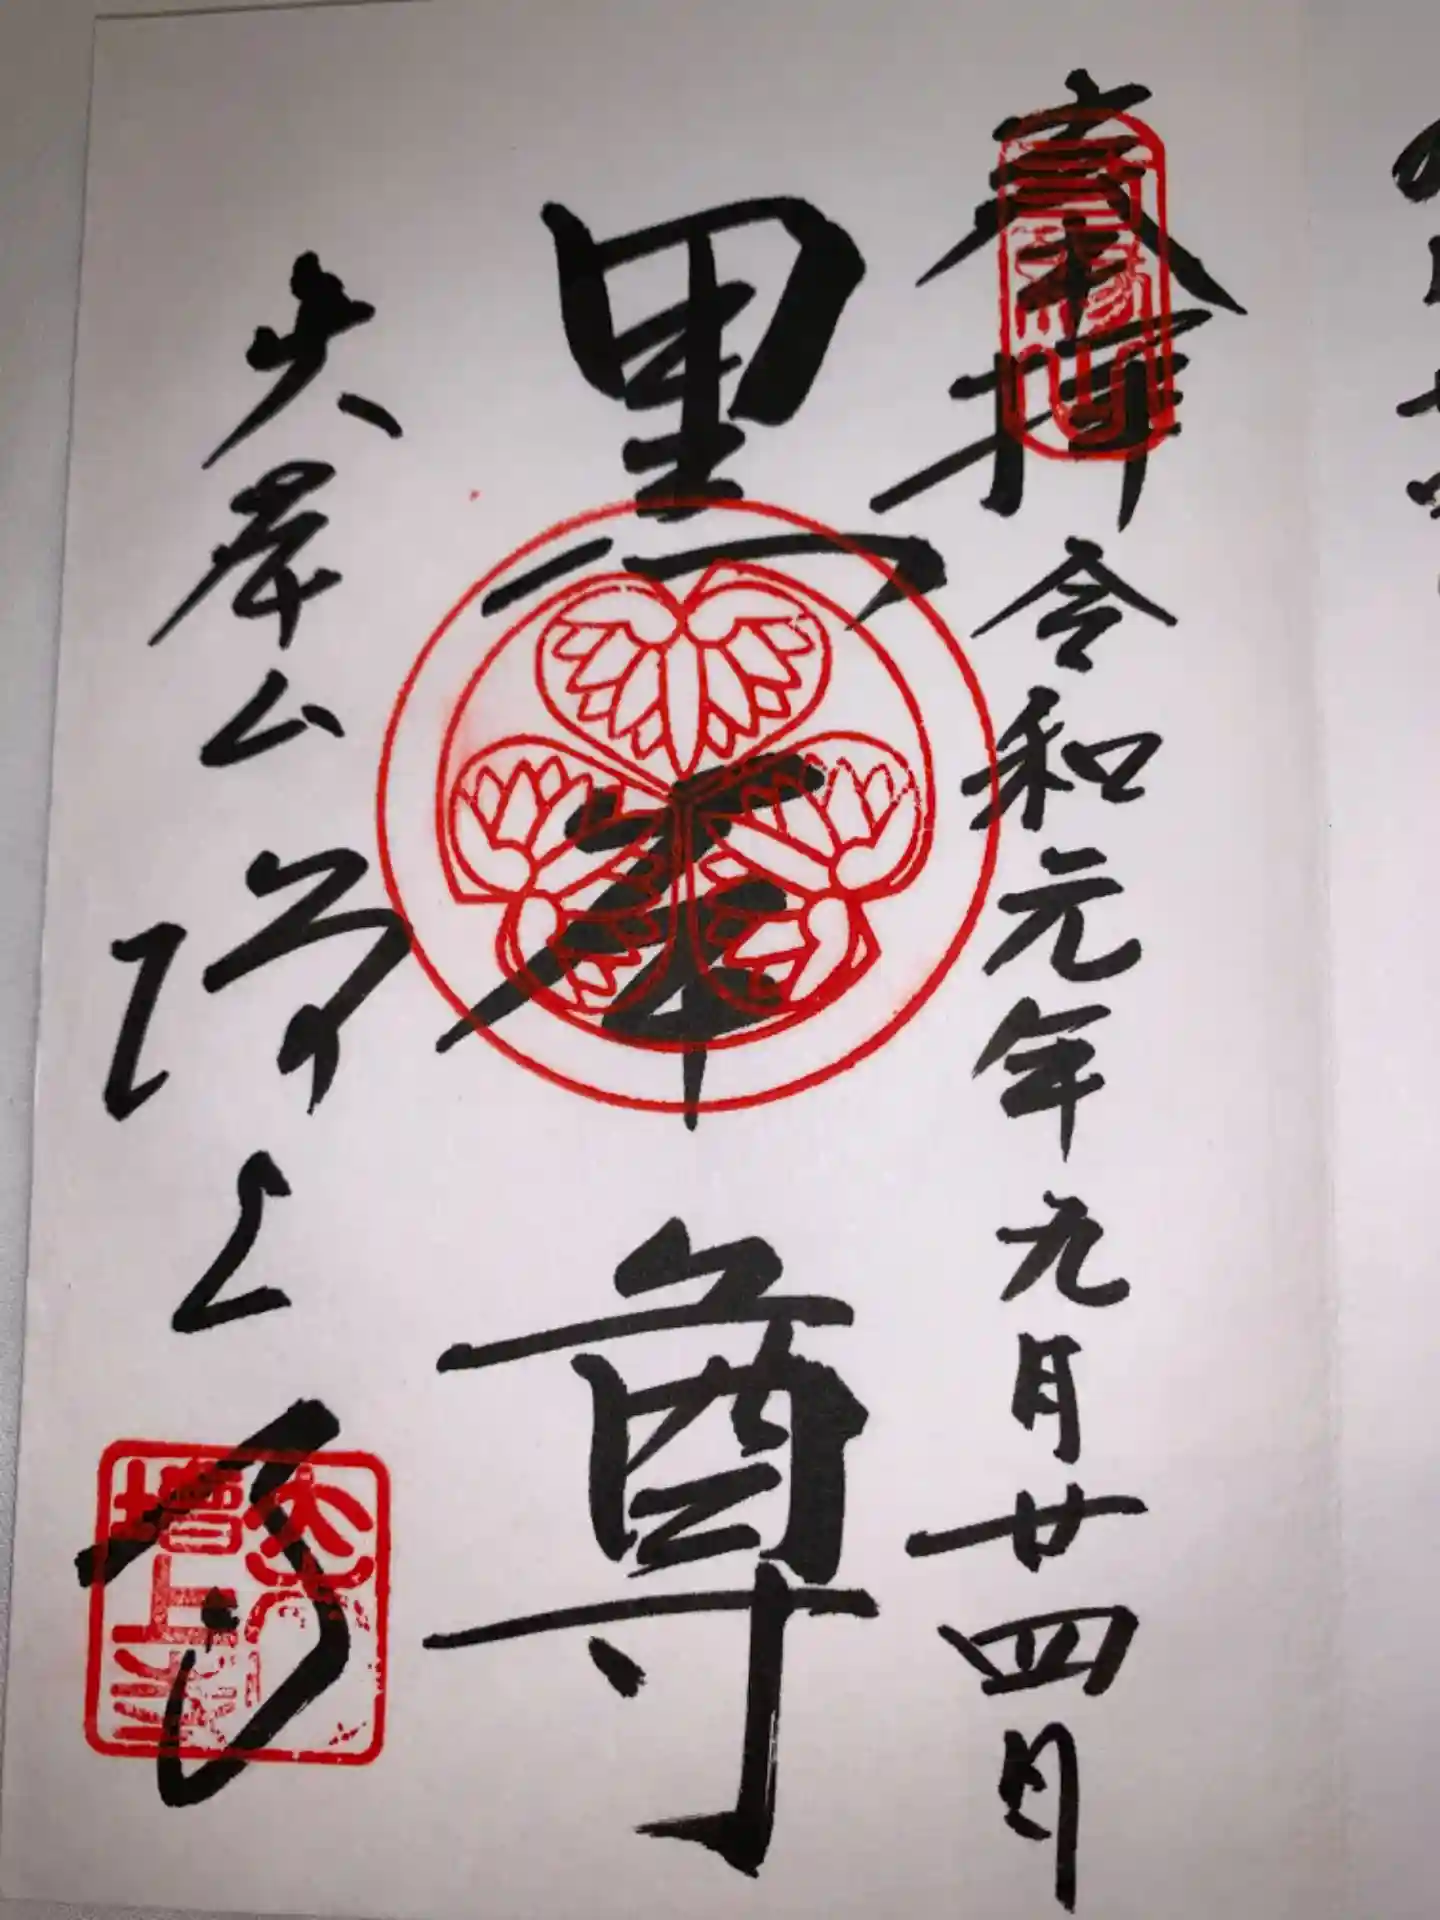 奉拝 令和元年九月廿四日
黒本尊
大本山 増上寺
大本山
増上寺